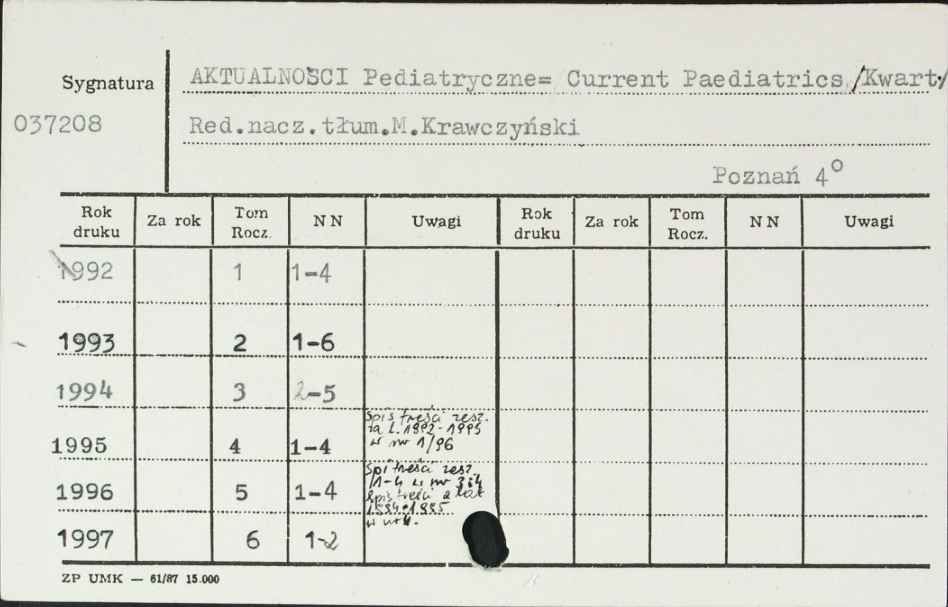 Sygnatura AKTUALNOŚCI Pediatryczne= Current Paediatrics /Kwart/
037208 Red.nacz.tłum.M.Krawczyński
Poznań 4°
Rok druku Za rok Tom Rocz. NN Uwagi Rok druku Za rok Tom Rocz. NN Uwagi
1992 1 1-4
1993 2 1-6
1994 3 2-5
Spis treści zesz.
za l. 1992-1995
1995 4 1-4 w nr 1/96
Spi treści zesz.
1-4 w nr 3i4
1996 5 1-4 Spis treści z lat
1994-1995
w nr 4.
1997 6 1-2
ZP UMK — 61/87 15.000